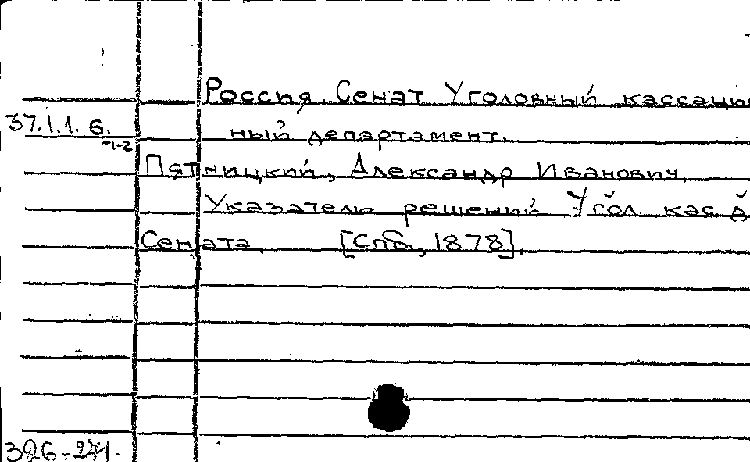 Россия. Сенат. Уголовный кассацион
37.1.1.6.
ный департамент.
т.1-2
Пятницкий, Александр Иванович.
Указатель решений Угол. кас. д
Сената. [Спб., 1878].
326-241.